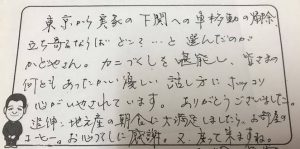 東京から実家の下関への車移動の際
立ち寄るならば どこ?…と選んだのが
かどやさん。カニづくしを堪能し、皆さまの
何ともあったかい優しい話し方にホッコリ
心がいやされています。ありがとうございました。
追伸:地元産の朝食に大満足しましたヨ。お部屋の
コーヒー。お心づくしに感謝。又、寄って来ますね。